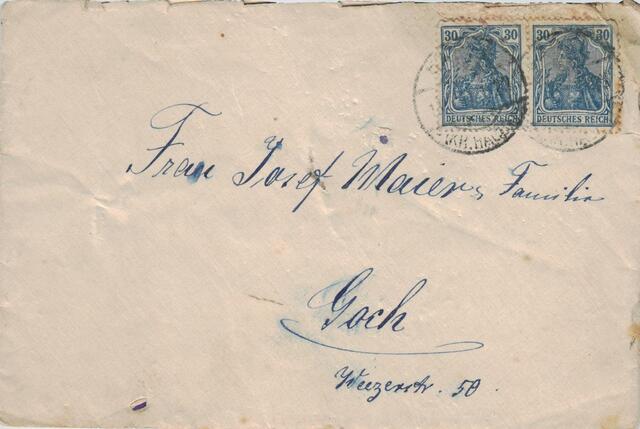 30 30
DEUTSCHES REICH DEUTSCHES REICH
(KR. HAL
Frau Josef Maier & Familie
Goch
Weezerstr. 50.